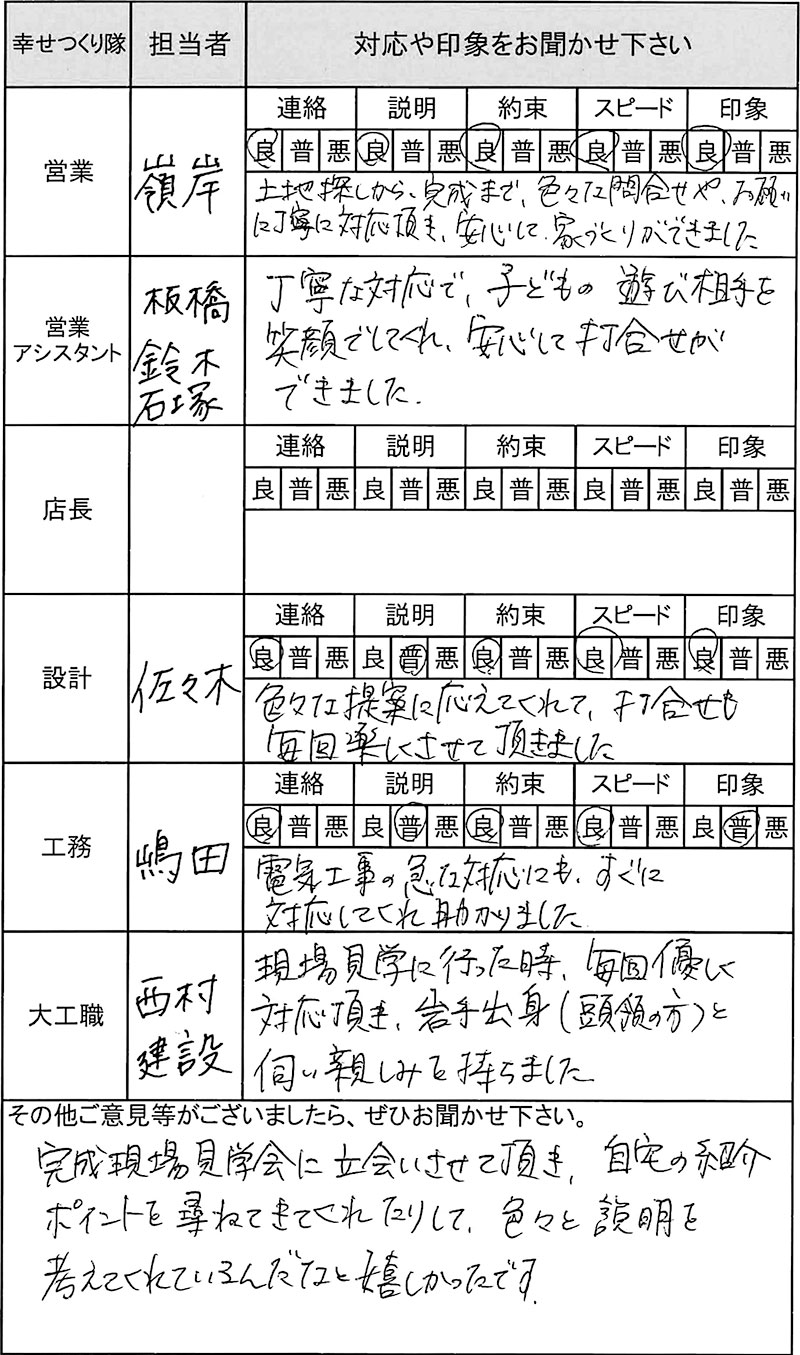 幸せつくり隊 担当者 対応や印象をお聞かせ下さい
営業 嶺岸
連絡 説明 約束 スピード 印象
良 普 悪 良 普 悪 良 普 悪 良 普 悪 良 普 悪
土地探しから、完成まで、色々な問合せや、お願い
に丁寧に対応頂き、安心して、家づくりができました
営業
アシスタント
板橋
鈴木
石塚
丁寧な対応で、子どもの遊び相手を
笑顔でしてくれ、安心して打合せが
できました.
店長
連絡 説明 約束 スピード 印象
良 普 悪 良 普 悪 良 普 悪 良 普 悪 良 普 悪
設計 佐々木
連絡 説明 約束 スピード 印象
良 普 悪 良 普 悪 良 普 悪 良 普 悪 良 普 悪
色々な提案に応えてくれて、打合せも
毎回楽しくさせて頂きました
工務 嶋田
連絡 説明 約束 スピード 印象
良 普 悪 良 普 悪 良 普 悪 良 普 悪 良 普 悪
電気工事の急な対応にも、すぐに
対応してくれ助かりました
大工職
西村
建設
現場見学に行った時、毎回優しく
対応頂き、岩手出身(頭領の方)と
伺い親しみを持ちました
その他ご意見等がございましたら、ぜひお聞かせ下さい。
完成現場見学会に立会いさせて頂き、自宅の紹介
ポイントを尋ねてきてくれたりして、色々と説明を
考えてくれているんだなと嬉しかったです.